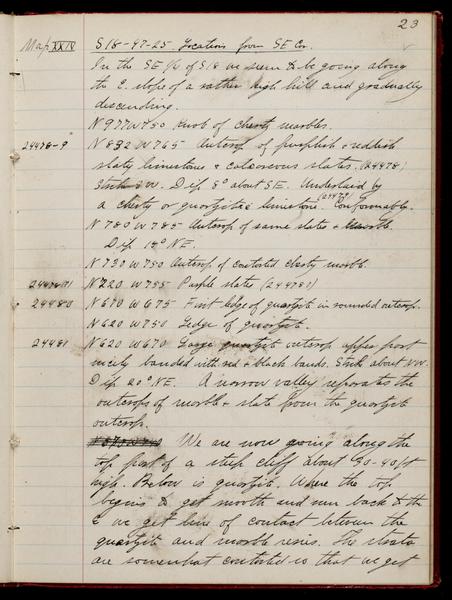 23
Map XXIV S18-47-25. Locations from SE Cor.
In the SE 1/4 of S18 we seem to be going along
the E. slope of a rather high hill and gradually
descending.
N 977 W 750 Knob of cherty marbles.
24478-9 N 832 W 765 Outcrop of purplish & reddish
slaty limestones & calcareous slates. (24478)
Strike W. Dip 8° about SE. Underlaid by
a cherty or quartzitic limestone (24479). Conformable.
N 780 W 785 Outcrop of same slates & marble.
Dip 12° NE.
N 730 W 750 Outcrop of contorted cherty marble.
N 720 W 755 Purple slates
24480 N 670 W 675 First ledge of quartzite in rounded outcrop.
N 620 W 750 Ledge of quartzite.
24481 N 620 W 670 Large quartzite outcrop upper part
nicely banded with red & black bands. Strike about NW.
Dip 20° NE. A narrow valley separates the
outcrops of marble & slate from the quartzite
outcrop.
We are now going along the
top part of a steep cliff about 30-40 ft
high. Below is quartzite. Where the top
begins to get smooth and run back to the
E we get line of contact between the
quartzite and marble series. The strata
are somewhat contorted so that we get